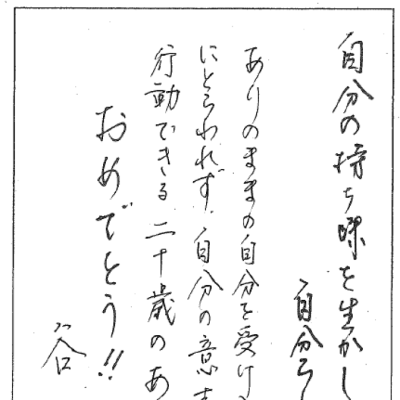 自分の持ち味を生かし
自分らし
ありのままの自分を受け
にとらわれず、自分の意志
行動できる二十歳のあ
おめでとう!!
谷